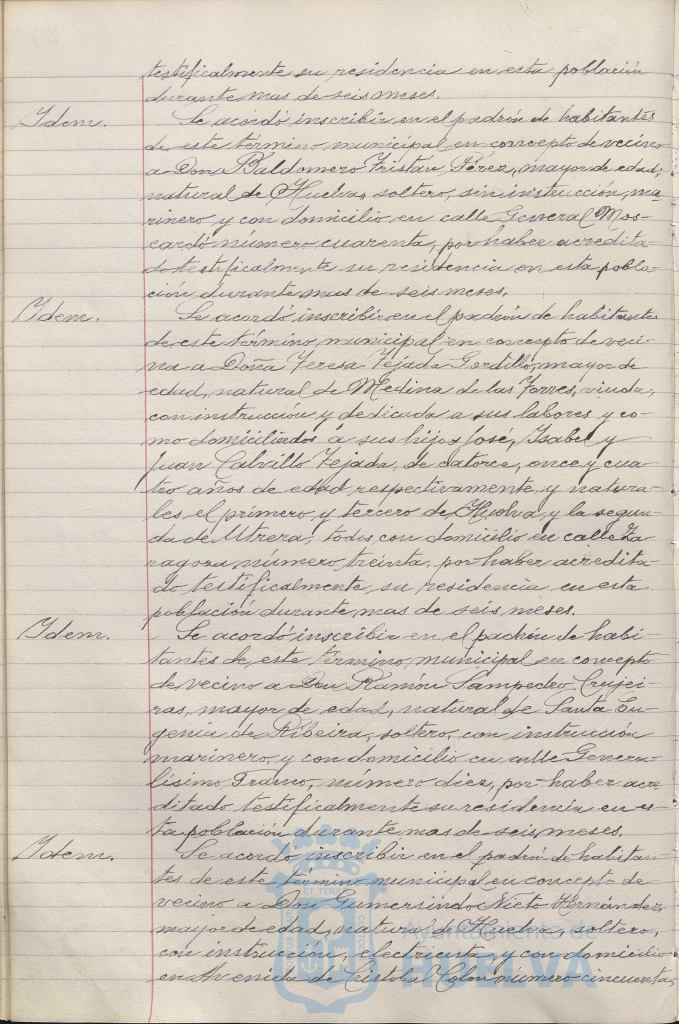 testificalmente su residencia en esta población
durante mas de seis meses.
Idem. Se acordó inscribir en el padrón de habitantes
de este término municipal en concepto de vecino
a Don Baldomero Tristan Pérez, mayor de edad,
natural de Huelva, soltero, sin instrucción, ma-
rinero y con domicilio en calle General Mos-
cardó número cuarenta, por haber acredita-
do testificalmente su residencia en esta pobla-
ción durante mas de seis meses.
Idem. Se acordó inscribir en el padrón de habitantes
de este término municipal en concepto de veci-
na a Doña Teresa Tejada Gordillo, mayor de
edad, natural de Medina de las Torres, viuda,
con instrucción y dedicada a sus labores y co-
mo domiciliados á sus hijos José, Isabel y
Juan Calvillo Tejada, de catorce, once y cua-
tro años de edad respectivamente y natura-
les el primero y tercero de Huelva y la segun-
da de Utrera, todos con domicilio en calle Za-
ragoza número treinta, por haber acredita-
do testificalmente su residencia en esta
población durante mas de seis meses.
Idem. Se acordó inscribir en el padrón de habi-
tantes de este término municipal en concepto
de vecino a Don Ramón Sampedro Crujei-
ras, mayor de edad, natural de Santa Eu-
genia de Ribeira, soltero, con instrucción
marinero, y con domicilio en calle Genera-
lísimo Franco, número diez, por haber acre-
ditado testificalmente su residencia en es-
ta población durante mas de seis meses.
Idem. Se acordó inscribir en el padrón de habitan-
tes de este término municipal en concepto de
vecino a Don Gumersindo Nieto Hernández,
mayor de edad, natural de Huelva, soltero,
con instrucción, electricista, y con domicilio
en Avenida de Cristobal Colon número cincuenta,
Ayuntamiento de
HUELVA